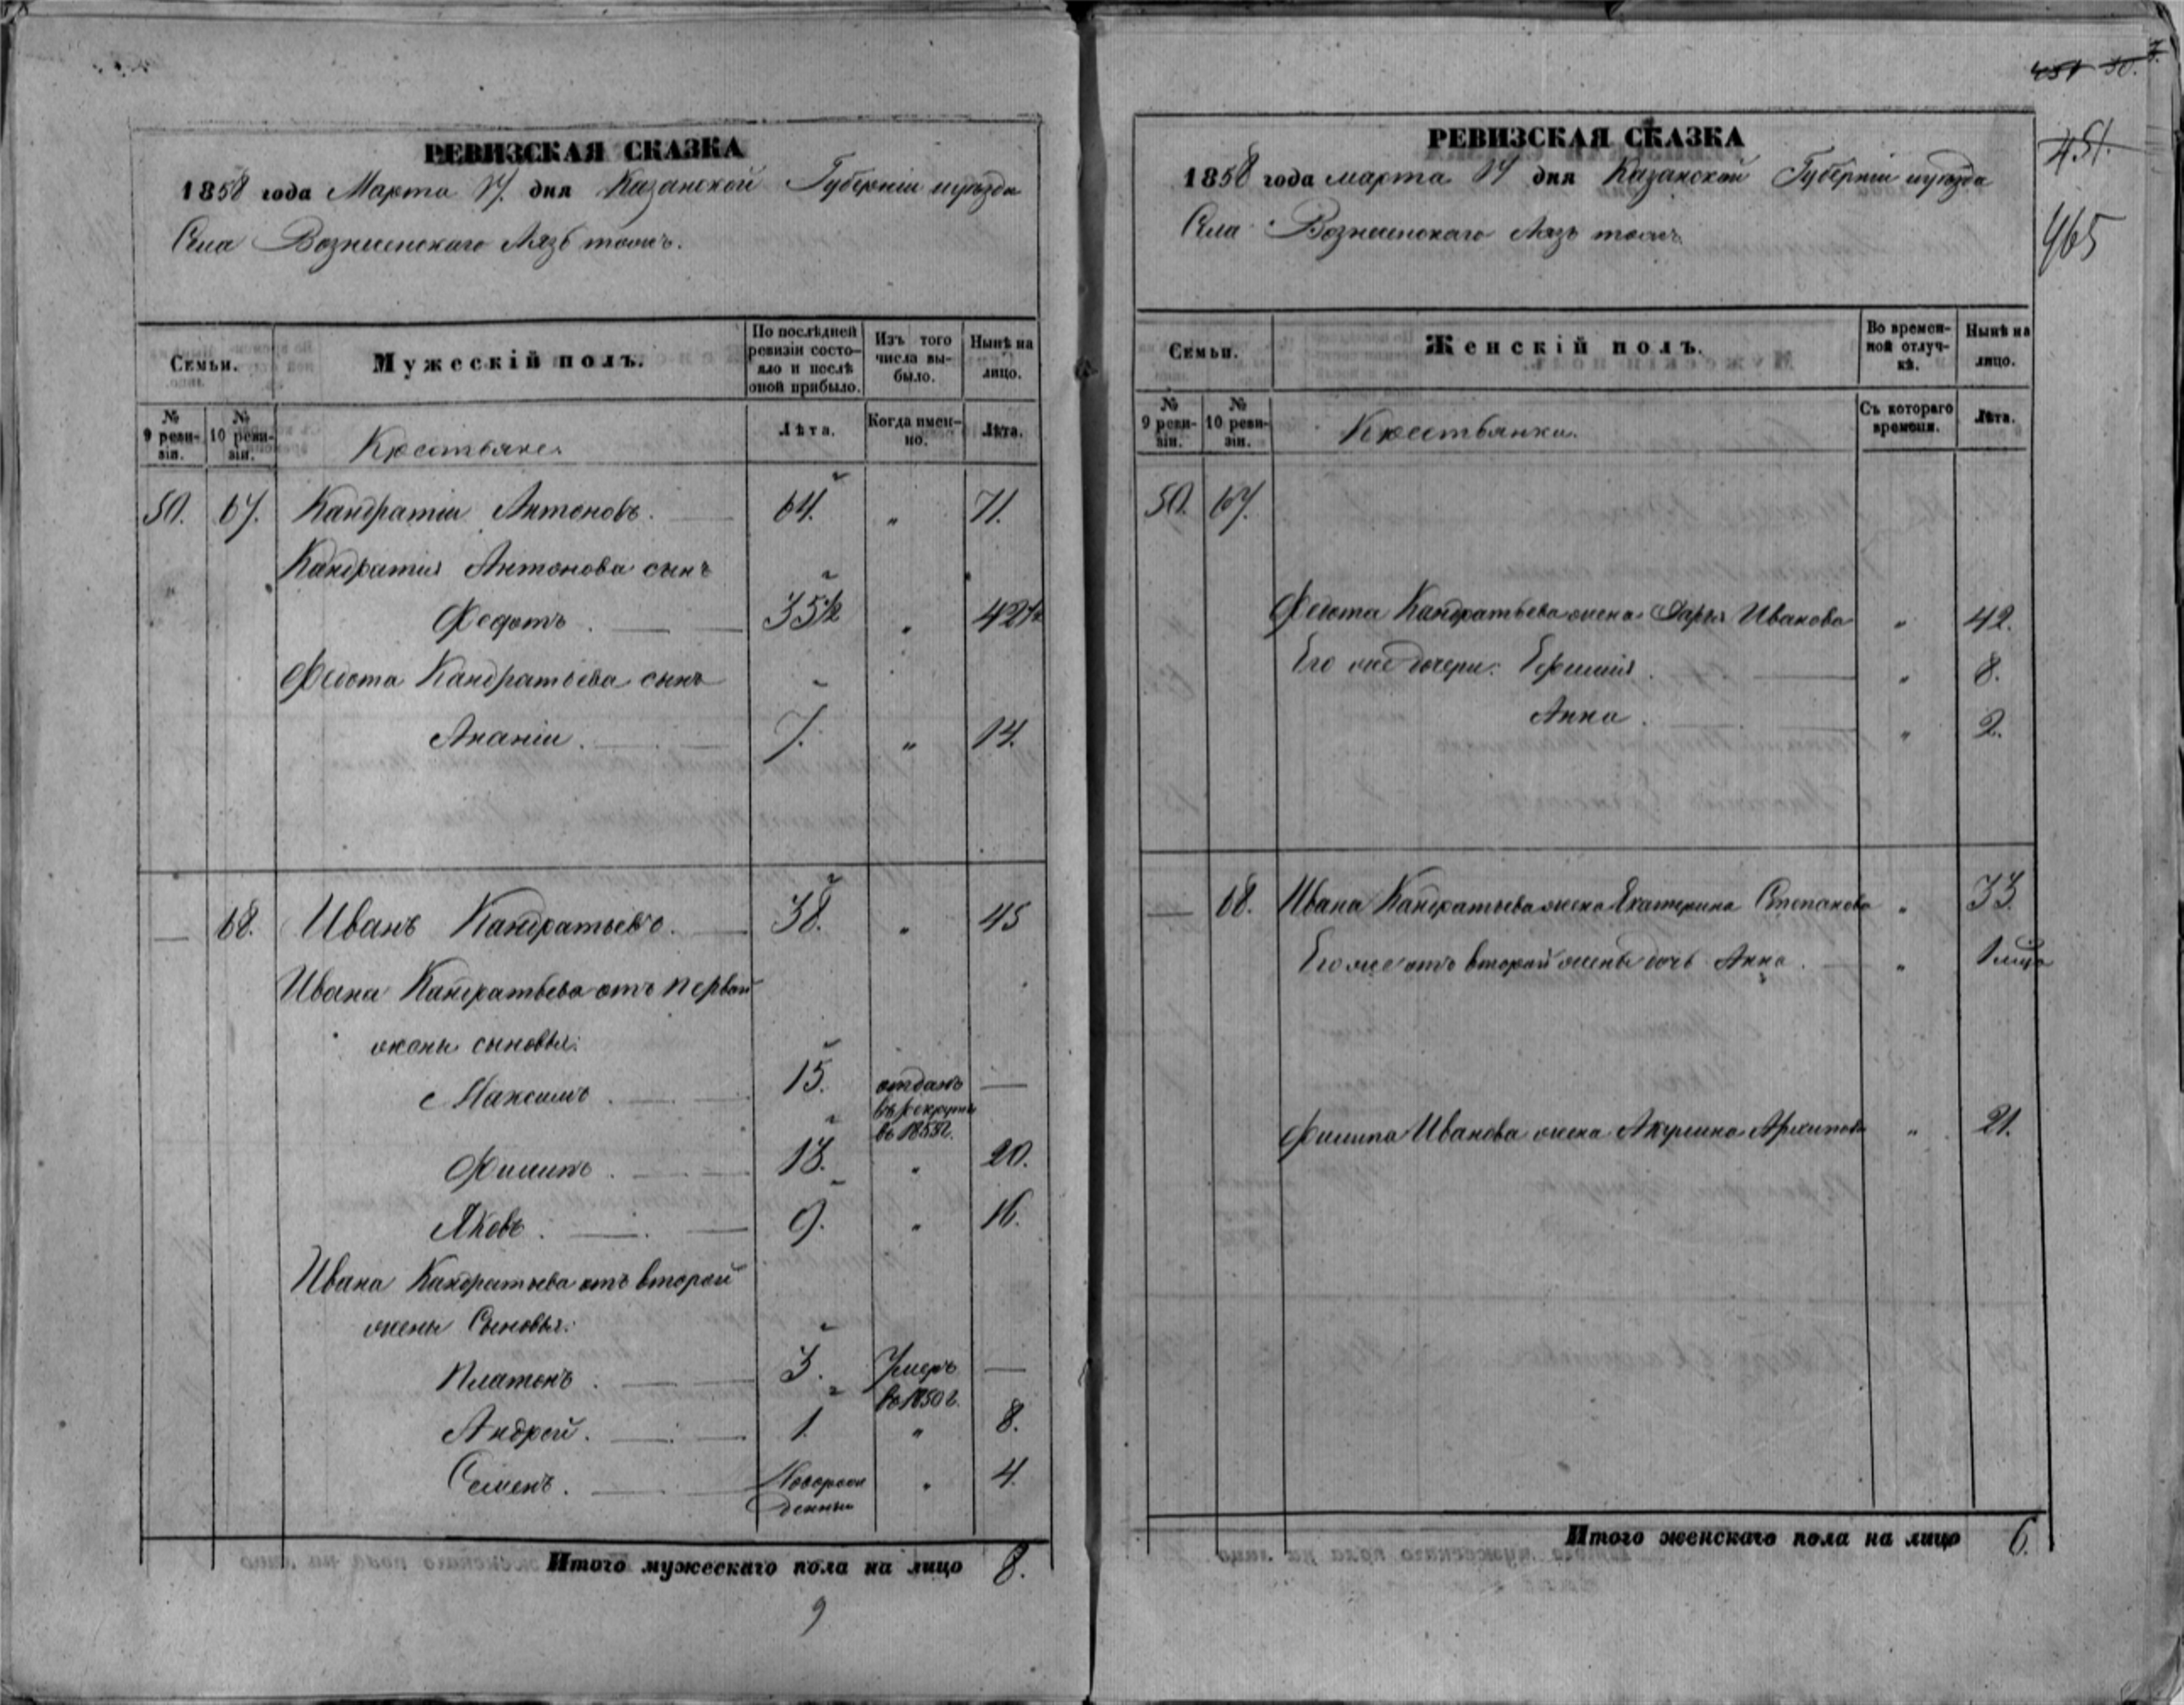 РЕВИЗСКАЯ СКАЗКА
1858 года Марта 17. дня Казанской Губерніи и уѣзда
Села Вознесенскаго Аязь тожъ.
Семьи.
Мужескій полъ.
По послѣдней ревизіи состояло и послѣ оной прибыло.
Изъ того числа выбыло.
Нынѣ на лицо.
№ 9 ревизіи.
№ 10 ревизіи.
Крестьяне.
Лѣта.
Когда именно.
Лѣта.
50. 67. Кандратіи Антоновъ. 64. " 71.
Кандратія Антонова сынъ
Федотъ. 35½ " 42½
Федота Кандратьева сынъ
Ананіи. 7. " 14.
— 68. Иванъ Кандратьевъ. 38. " 45
Ивана Кандратьева отъ первой
жены сыновья:
Максимъ. 15. отданъ —
въ рекруты
въ 1855 г.
Филипъ. 13. " 20.
Яковъ. 9. " 16.
Ивана Кандратьева отъ второй
жены Сыновья:
Платонъ. 3. Умеръ —
въ 1850 г.
Андрей. 1. " 8.
Семенъ. Новорож " 4.
денный
Итого мужескаго пола на лицо 8.
9
451 50. 7.
451.
465
РЕВИЗСКАЯ СКАЗКА
1858 года марта 17 дня Казанской Губерніи и уѣзда
Села Вознесенскаго Аязь тожъ
Семьи.
Женскій полъ.
Во временной отлучкѣ.
Нынѣ на лицо.
№ 9 ревизіи.
№ 10 ревизіи.
Крестьянки.
Съ котораго времени.
Лѣта.
50. 67.
Федота Кандратьева жена Дарья Иванова " 42.
Его же дочери: Ефимія. " 8.
Анна. " 2.
— 68. Ивана Кандратьева жена Екатерина Степанова " 33.
Его же отъ второй жены дочь Анна. "
Филипа Иванова жена Акулина Архипова " 21.
Итого женскаго пола на лицо 6.